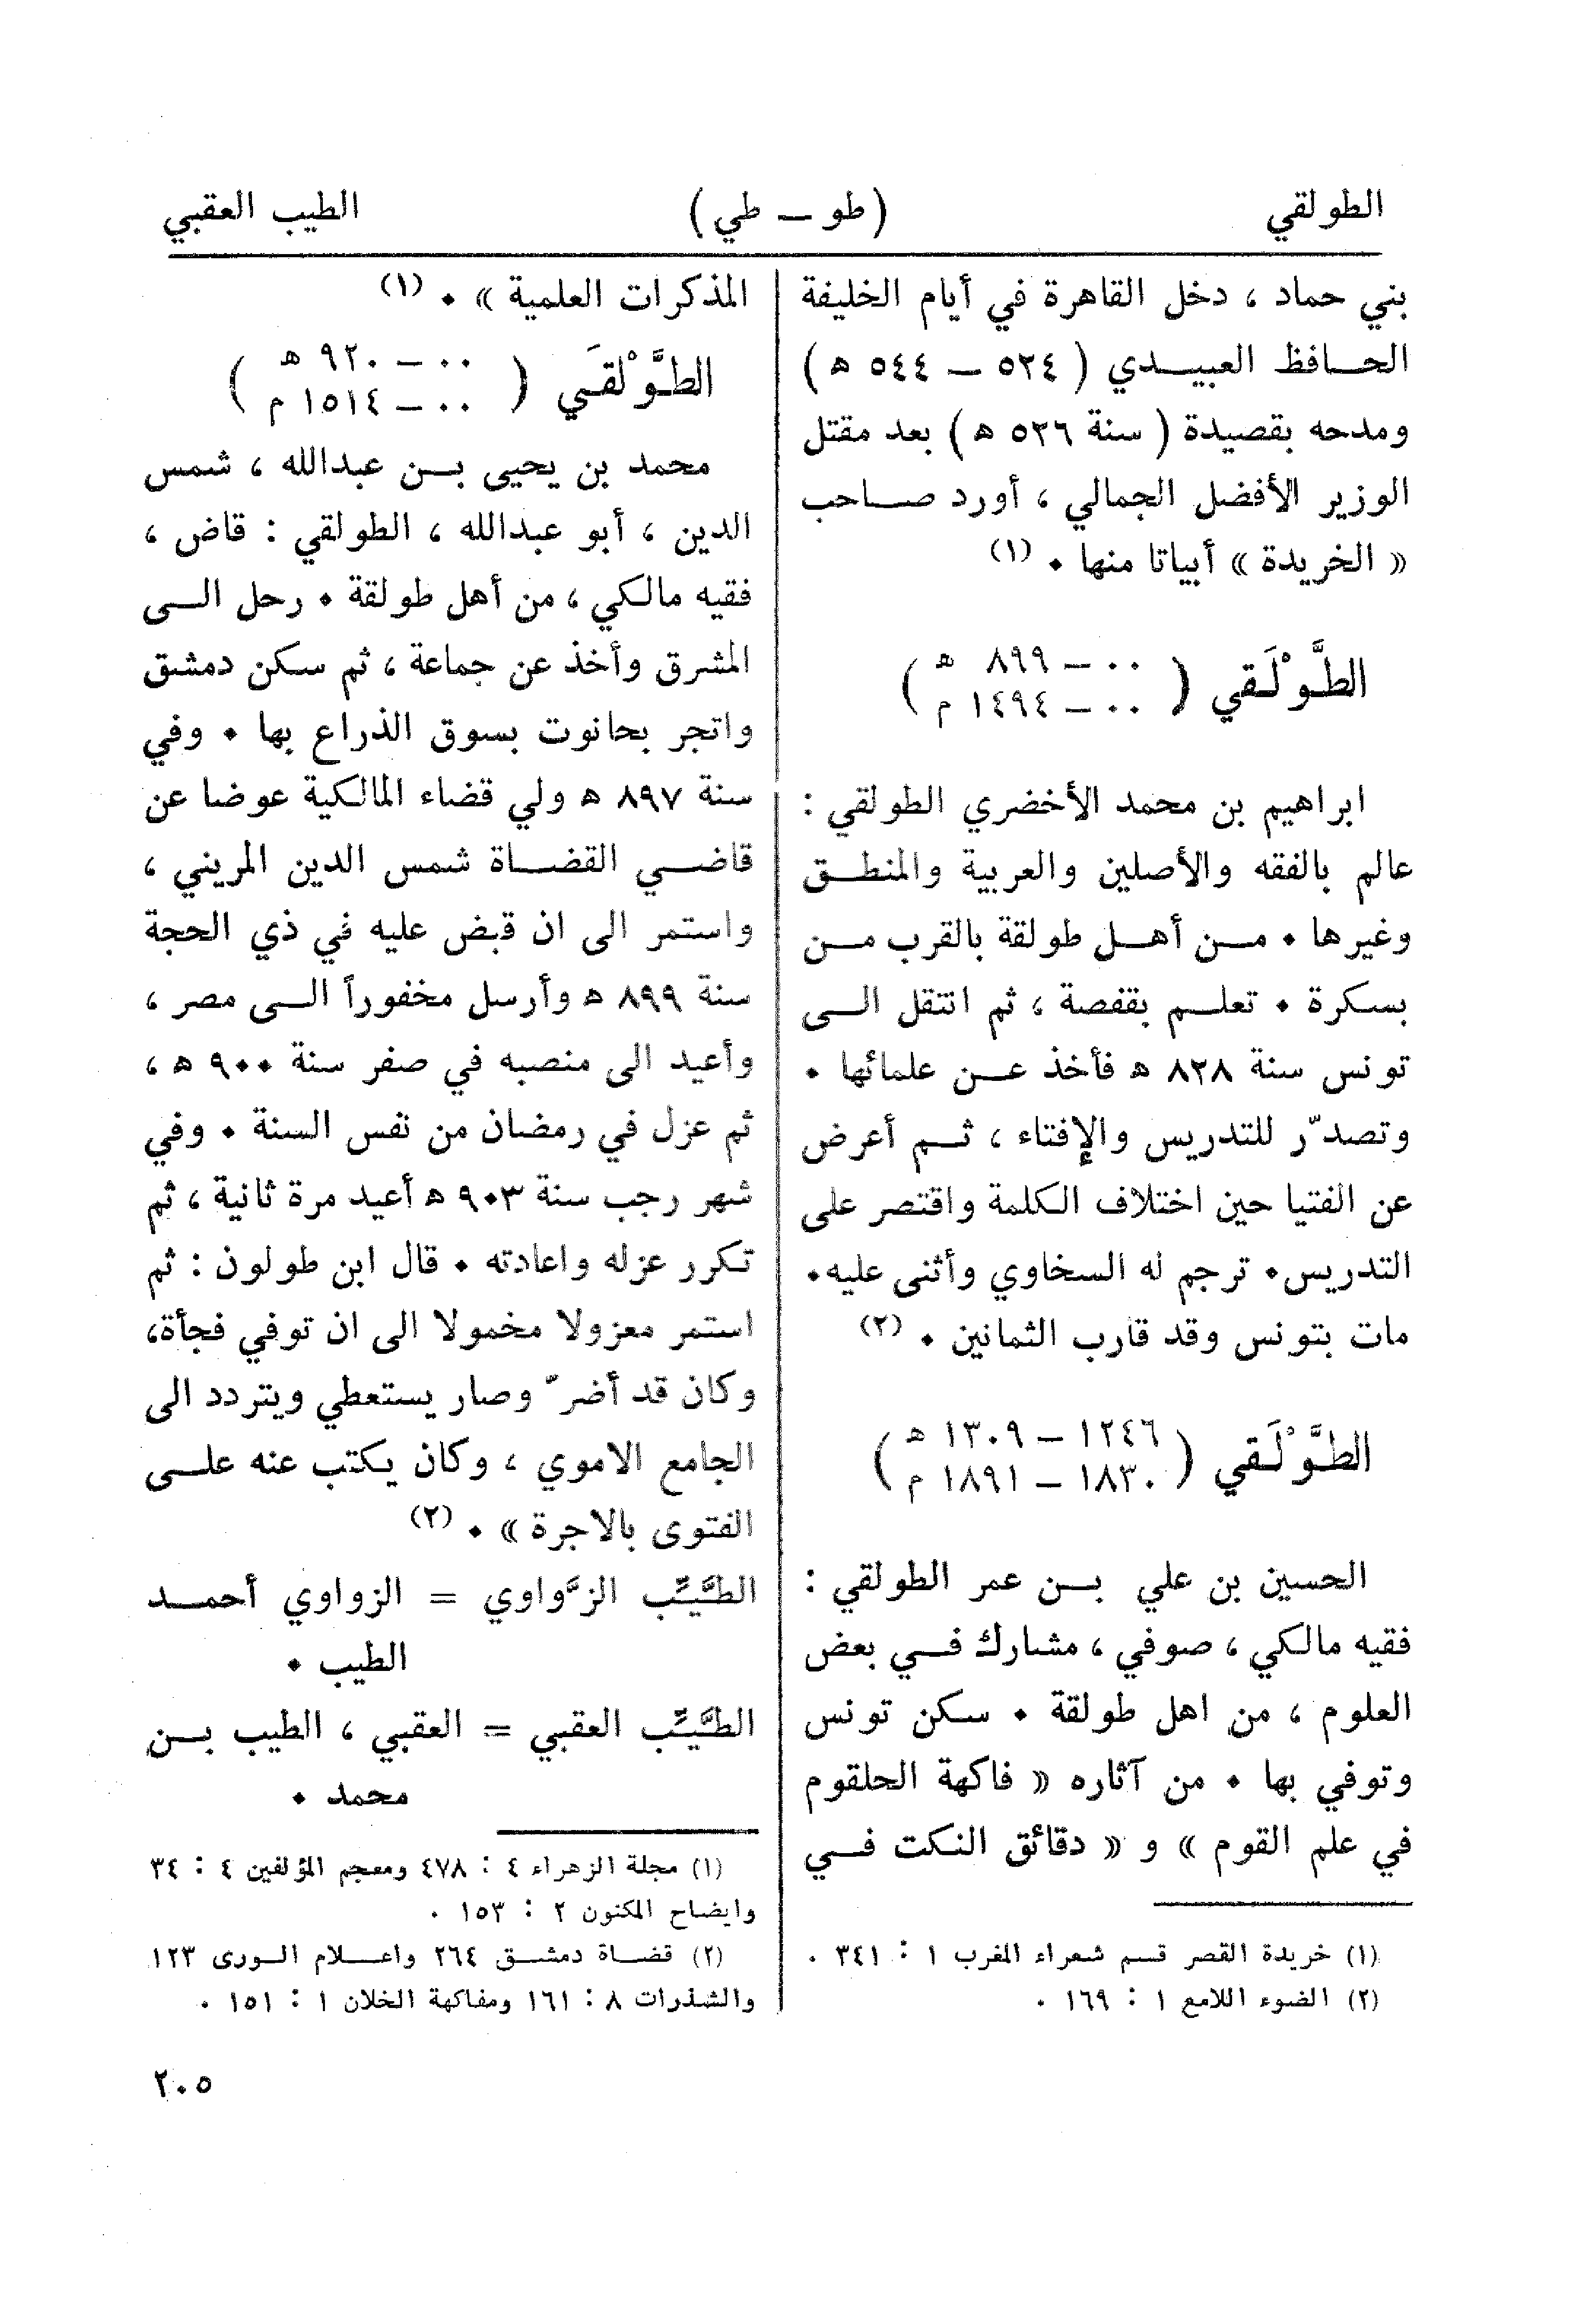 الطولقي (طو ــ طي) الطيب العقبي
بني حماد ، دخل القاهرة في أيام الخليفة
الحافظ العبيدي ( ٥٢٤ ــ ٥٤٤ هـ )
ومدحه بقصيدة ( سنة ٥٢٦ هـ ) بعد مقتل
الوزير الأفضل الجمالي ، أورد صاحب
« الخريدة » أبياتا منها ٠ (١)
الطَّوْلَقي ( ٠٠ ــ ٨٩٩ هـ
٠٠ ــ ١٤٩٤ م )
ابراهيم بن محمد الأخضري الطولقي :
عالم بالفقه والأصلين والعربية والمنطق
وغيرها ٠ من أهل طولقة بالقرب من
بسكرة ٠ تعلم بقفصة ، ثم انتقل الى
تونس سنة ٨٢٨ هـ فأخذ عن علمائها ٠
وتصدّر للتدريس والإفتاء ، ثم أعرض
عن الفتيا حين اختلاف الكلمة واقتصر على
التدريس٠ ترجم له السخاوي وأثنى عليه٠
مات بتونس وقد قارب الثمانين ٠ (٢)
الطَّوْلَقي ( ١٢٤٦ ــ ١٣٠٩ هـ
١٨٣٠ ــ ١٨٩١ م )
الحسين بن علي بن عمر الطولقي :
فقيه مالكي ، صوفي ، مشارك في بعض
العلوم ، من اهل طولقة ٠ سكن تونس
وتوفي بها ٠ من آثاره « فاكهة الحلقوم
في علم القوم » و « دقائق النكت في
(١) خريدة القصر قسم شعراء المغرب ١ : ٣٤١ ٠
(٢) الضوء اللامع ١ : ١٦٩ ٠
المذكرات العلمية » ٠ (١)
الطَّوْلقَي ( ٠٠ ــ ٩٢٠ هـ
٠٠ ــ ١٥١٤ م )
محمد بن يحيى بن عبدالله ، شمس
الدين ، أبو عبدالله ، الطولقي : قاض ،
فقيه مالكي ، من أهل طولقة ٠ رحل الى
المشرق وأخذ عن جماعة ، ثم سكن دمشق
واتجر بحانوت بسوق الذراع بها ٠ وفي
سنة ٨٩٧ هـ ولي قضاء المالكية عوضا عن
قاضي القضاة شمس الدين المريني ،
واستمر الى ان قبض عليه في ذي الحجة
سنة ٨٩٩ هـ وأرسل مخفوراً الى مصر ،
وأعيد الى منصبه في صفر سنة ٩٠٠ هـ ،
ثم عزل في رمضان من نفس السنة ٠ وفي
شهر رجب سنة ٩٠٣ هـ أعيد مرة ثانية ، ثم
تكرر عزله واعادته ٠ قال ابن طولون : ثم
استمر معزولا مخمولا الى ان توفي فجأة،
وكان قد أضرّ وصار يستعطي ويتردد الى
الجامع الاموي ، وكان يكتب عنه على
الفتوى بالاجرة » ٠ (٢)
الطَّيِّب الزَّواوي = الزواوي أحمد
الطيب ٠
الطَّيِّب العقبي = العقبي ، الطيب بن
محمد ٠
(١) مجلة الزهراء ٤ : ٤٧٨ ومعجم المؤلفين ٤ : ٣٤
وايضاح المكنون ٢ : ١٥٣ ٠
(٢) قضاة دمشق ٢٦٤ واعلام الورى ١٢٣
والشذرات ٨ : ١٦١ ومفاكهة الخلان ١ : ١٥١ ٠
٢٠٥